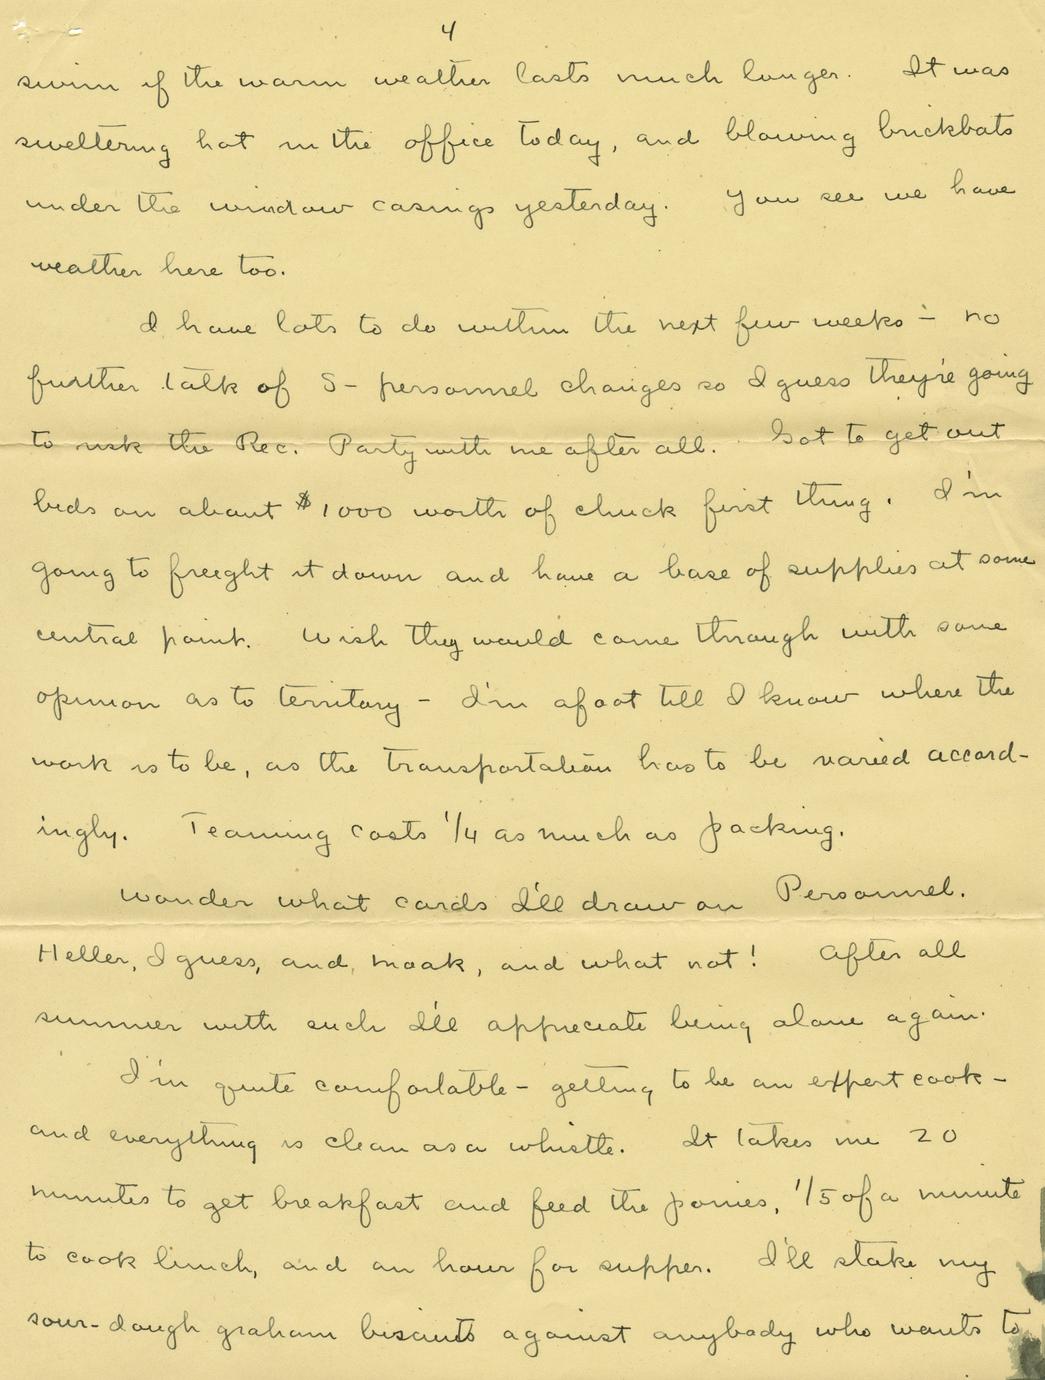 4
swim if the warm weather lasts much longer. It was
sweltering hot in the office today, and blowing brickbats
under the window casings yesterday. You see we have
weather here too.
I have lots to do within the next few weeks – no
further talk of S – personnel changes so I guess they're going
to risk the Rec. Party with me after all. Got to get out
bids on about $1000 worth of chuck first thing. I'm
going to freight it down and have a base of supplies at some
central point. Wish they would come through with some
opinion as to territory – I'm afoot till I know where the
work is to be, as the transportation has to be varied accord-
ingly. Teaming costs 1/4 as much as packing.
Wonder what cards I'll draw on Personnel.
Heller, I guess, and, Moak, and what not! After all
summer with such I'll appreciate being alone again.
I'm quite comfortable – getting to be an expert cook –
and everything is clean as a whistle. It takes me 20
minutes to get breakfast and feed the ponies, 1/5 of a minute
to cook lunch, and an hour for supper. I'll stake my
sour-dough graham biscuits against anybody who wants to